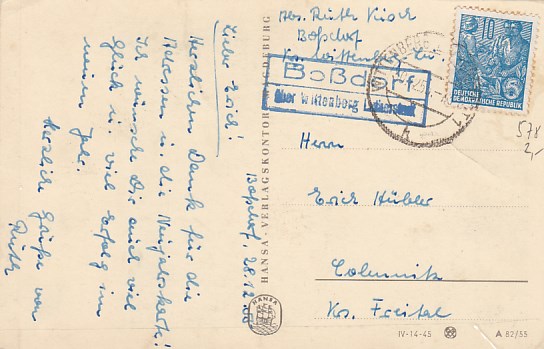 Boßdorf, 28.12.56
Liebe Erich!
Herzlichen Dank für die
Adressen u. die Neujahrskarte!
Ich wünsche Dir auch viel
Glück u. viel Erfolg im
neuen Jahr.
Herzliche Grüße von
Ruth
HANSA-VERLAGSKONTOR MAGDEBURG
HANSA
Abs. Ruth Kisch
Boßdorf
Kr. Wittenberg, Lu.
Boßdorf
über Wittenberg Lutherstadt
10
DEUTSCHE
DEMOKRATISCHE REPUBLIK
578
2,-
Herrn
Erich Hübler
Colmnitz
Kr. Freital
IV-14-45
A 82/55